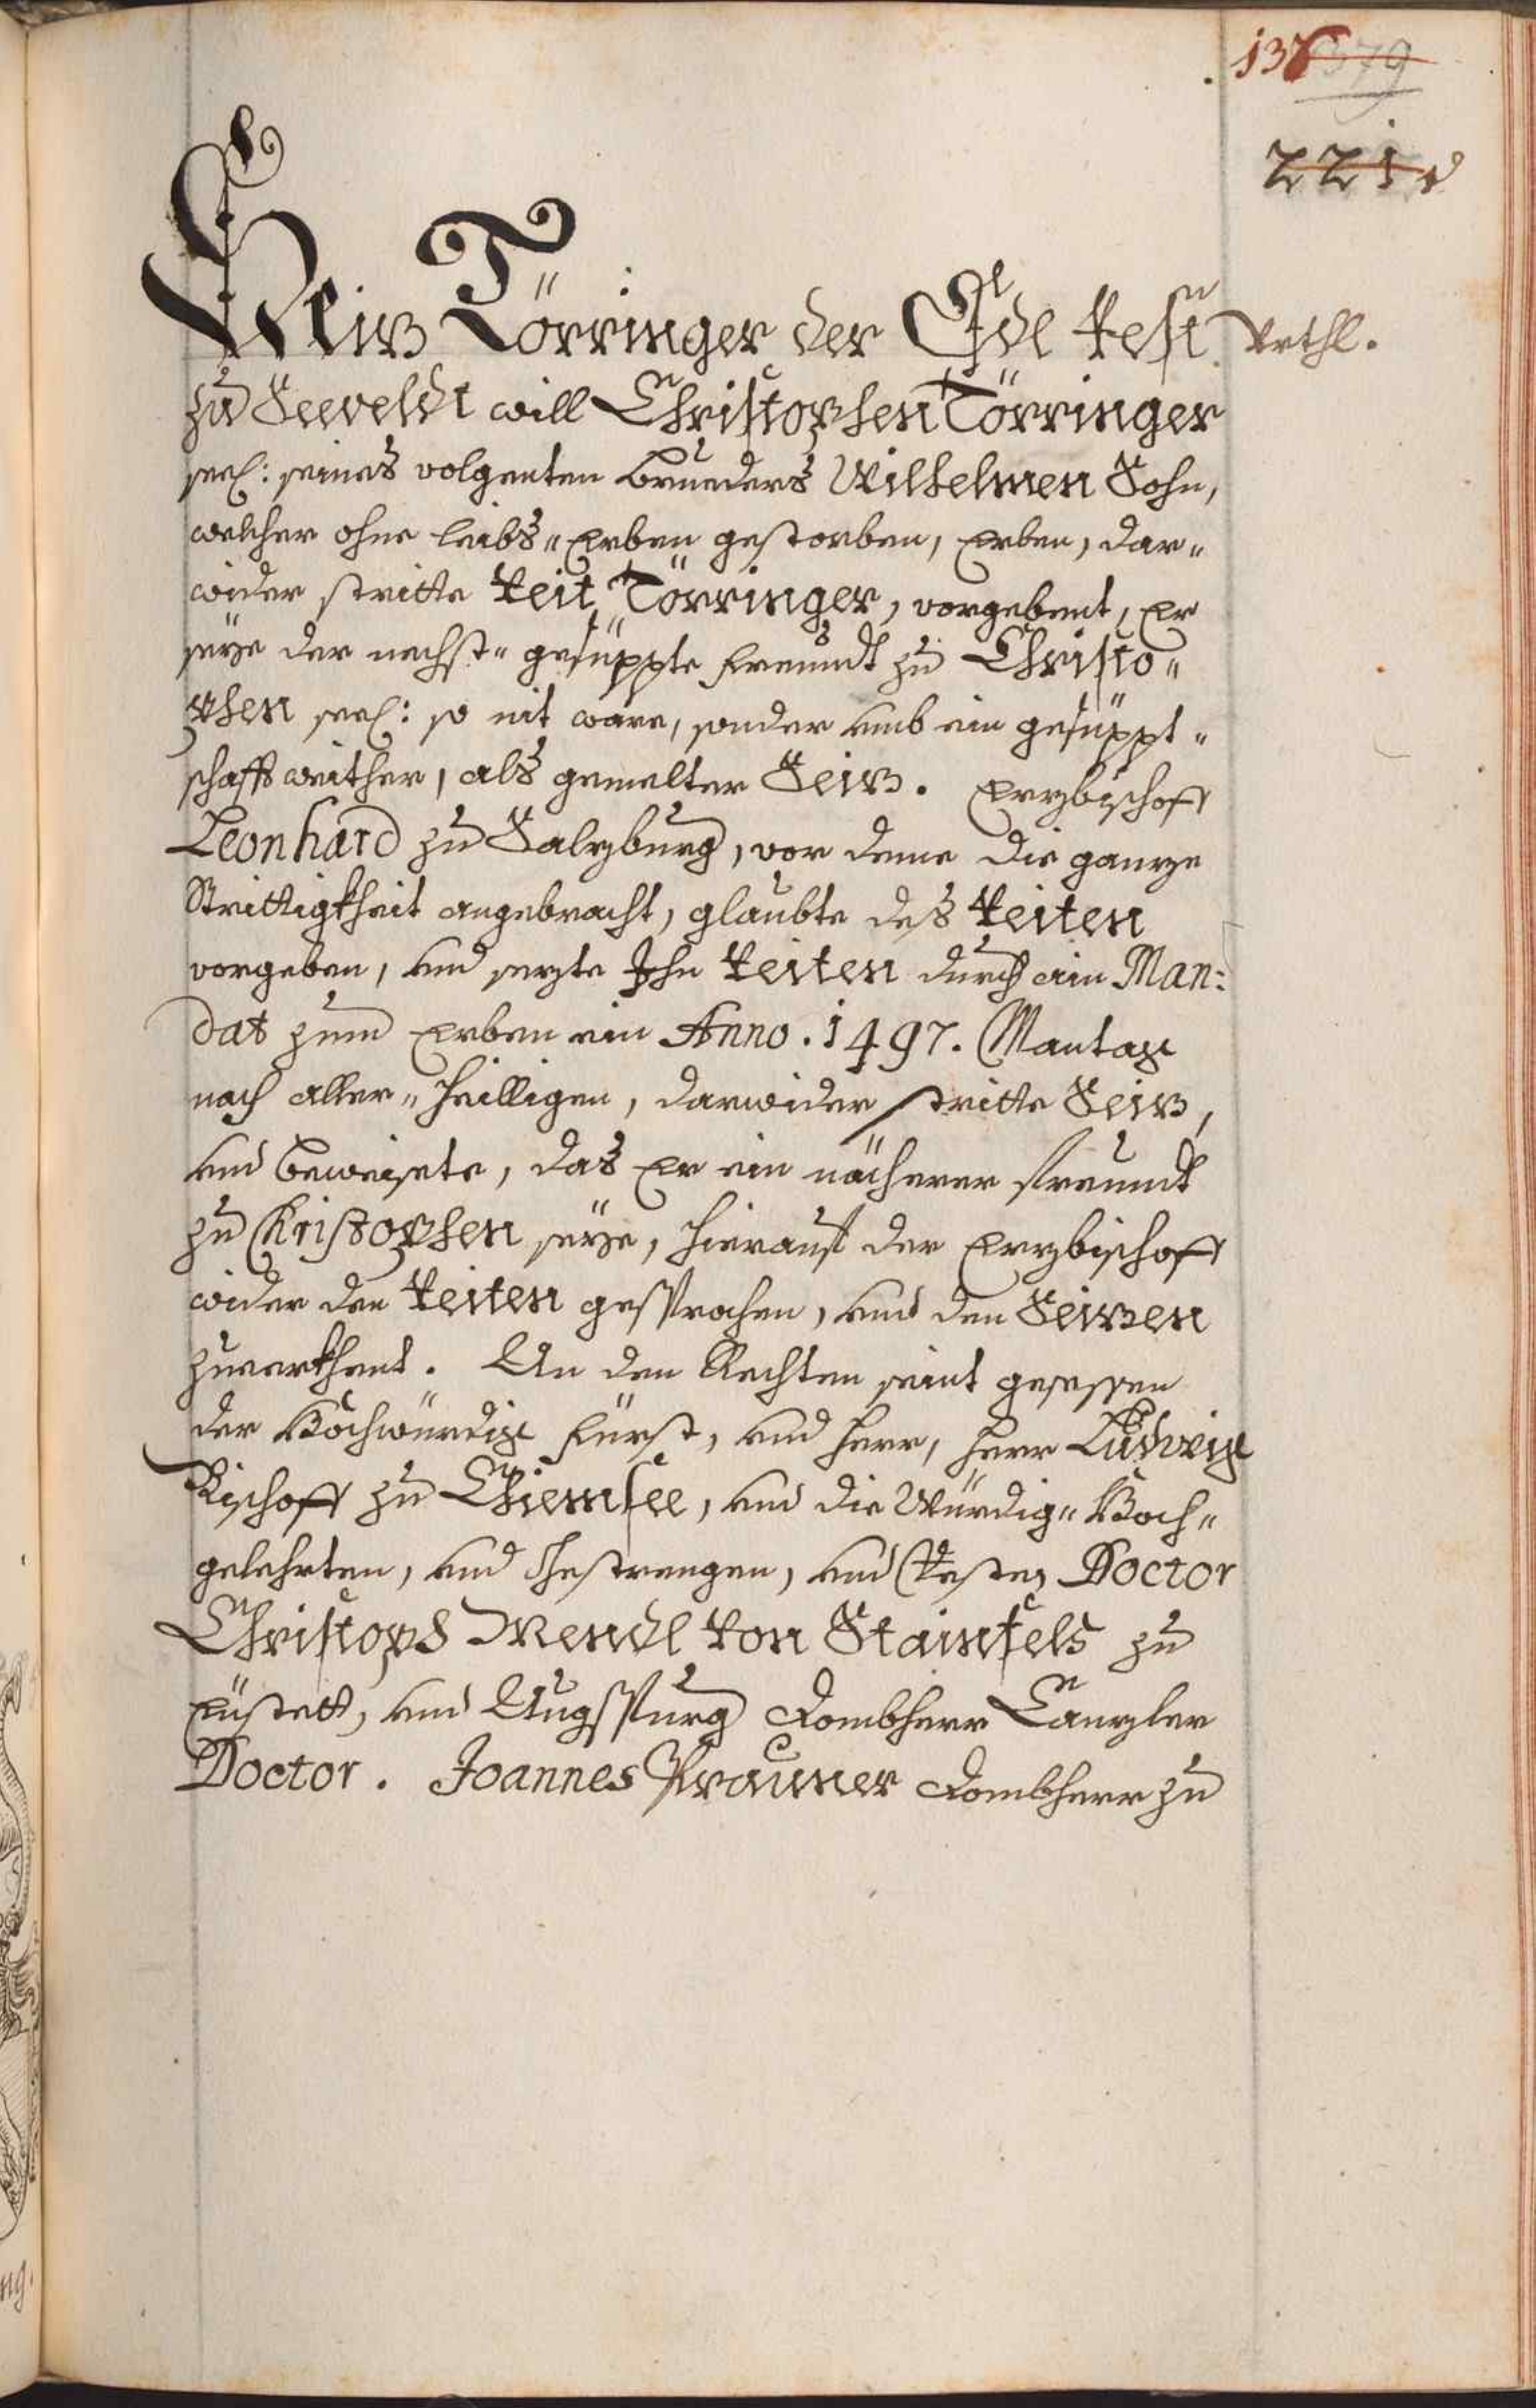 137 379
221
Seiz Törringer der Edl Vest
Urthl.
zu Seeveldt will Christophen Törringer
seel: seines volgenten Brueders Wilhelmen Sohn,
welcher ohne leibs" Erben gestorben, Erben, dar"
wider stritte Veit Törringer, vorgebent, Er
seye der nechst" gesüppte Freundt zu Christo"
phen seel: so nit ware, sonder umb ein gesüppt"
schafft weither, als gemelter Seiz. Erzbischoff
Leonhard zu Salzburg, vor deme die ganze
Strittigkheit angebracht, glaubte des Veiten
vorgeben, und sezte Jhn Veiten durch ain Man:
dat zum Erben ein Anno. 1497. Mantag
nach Aller" Heilligen, darwider stritte Seiz,
und beweisete, das Er ein nächerer freundt
zu Christophen seye, hierauf der Erzbischoff
wider den Veiten gesprochen, und den Seizen
zuerkhent. An den Rechten seint gesessen
der Hochwürdig Fürst, und Herr, Herr Ludwig
Bischoff zu Chiemsee, und die Würdig" Hoch"
gelehrten, und Gestrengen, und Vesten, Doctor
Christoph Mendl von Stainfels zu
Eüstett, und Augspurg Dombherr Canzler
Doctor. Joannes Prauner Dombherr zu